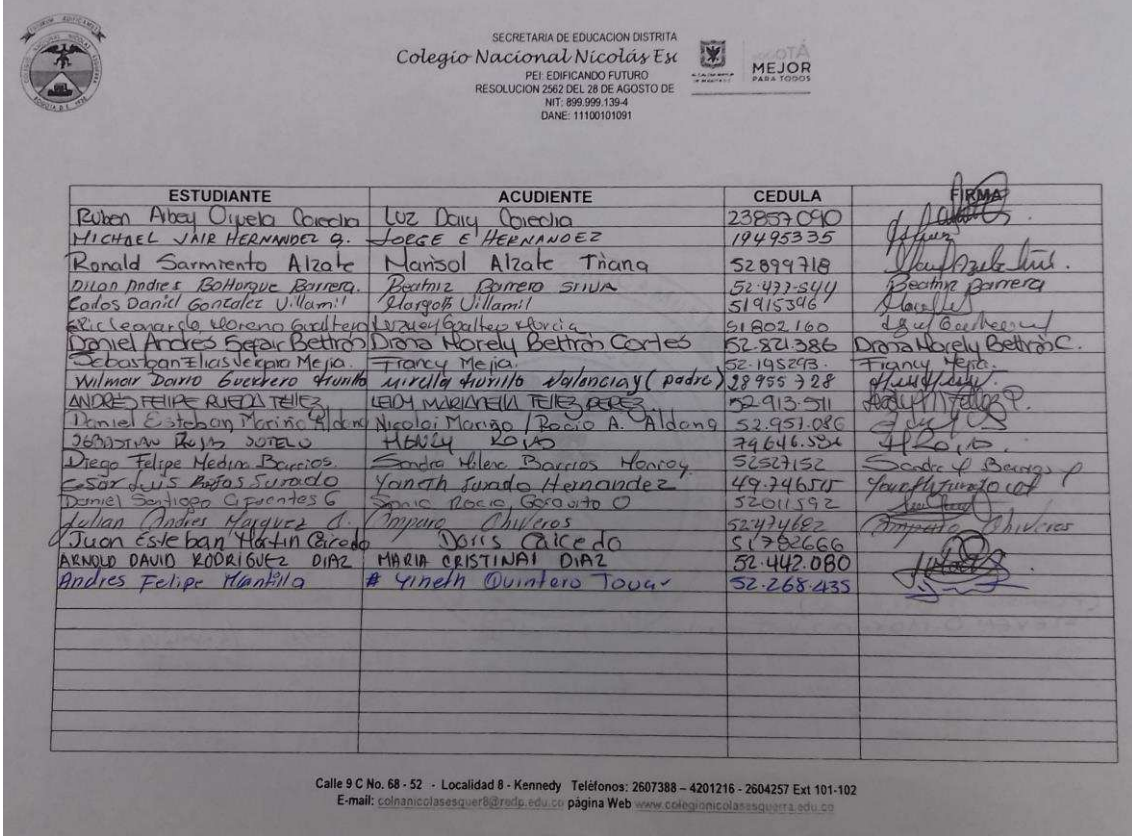 SECRETARIA DE EDUCACION DISTRITA
Colegio Nacional Nicolás Es
PEI: EDIFICANDO FUTURO
RESOLUCION 2562 DEL 28 DE AGOSTO DE
NIT: 899.999.139-4
DANE: 11100101091
MEJOR
PARA TODOS
ESTUDIANTE ACUDIENTE CEDULA FIRMA
Ruben Luz Dary 23857090
MICHAEL JAIR HERNANDEZ G. JORGE E HERNANDEZ 19495335
Ronald Sarmiento Alzate Marisol Alzate Triana 52899718
Dilan Andres BoHorque Barrera. Beatriz Barrero SILVA 52.477.544 Beatriz Barrera
Carlos Daniel Gonzalez Villamil Margoth Villamil 51915346
Eric Leonardo Moreno Murcia 51802160
Daniel Andres Beltrán Diana Norely Beltrán Cortes 52.821.386 Diana Norely Beltrán C.
Sebastian Elias Mejia. Francy Mejia. 52.195293. Francy Mejia.
Wilmar Dario Guerrero Murillo Mirella Murillo Valencia y (padre) 28955728
ANDRES FELIPE RUEDA TELLEZ LEIDY MARIANELLA TELLEZ PEREZ. 52.913.511
Daniel Esteban Mariño Aldana Nicolai Mariño / Rocio A. Aldana 52.951.086
SEBASTIAN ROJAS SOTELO HENRY ROJAS 79646.584
Diego Felipe Medina Barrios. Sandra Milena Barrios Monroy 52527152
Cesar Luis Rojas Jurado Yaneth Jurado Hernandez 49.746515
Daniel Santiago Cifuentes G Sonia Rocio O 52011592
Julian Andres Marquez Amparo Chiveros 52474682 Amparo Chiveros
Juan Esteban Martin Caicedo Doris Caicedo 51782666
ARNOLD DAVID RODRIGUEZ DIAZ MARIA CRISTINA DIAZ 52.442.080
Andres Felipe Mantilla # Yineth Quintero Tovar 52.268.435
Calle 9 C No. 68 - 52 - Localidad 8 - Kennedy Teléfonos: 2607388 – 4201216 - 2604257 Ext 101-102
E-mail: colnanicolasesguer8@redp.edu.co página Web www.colegionicolasesguerra.edu.co